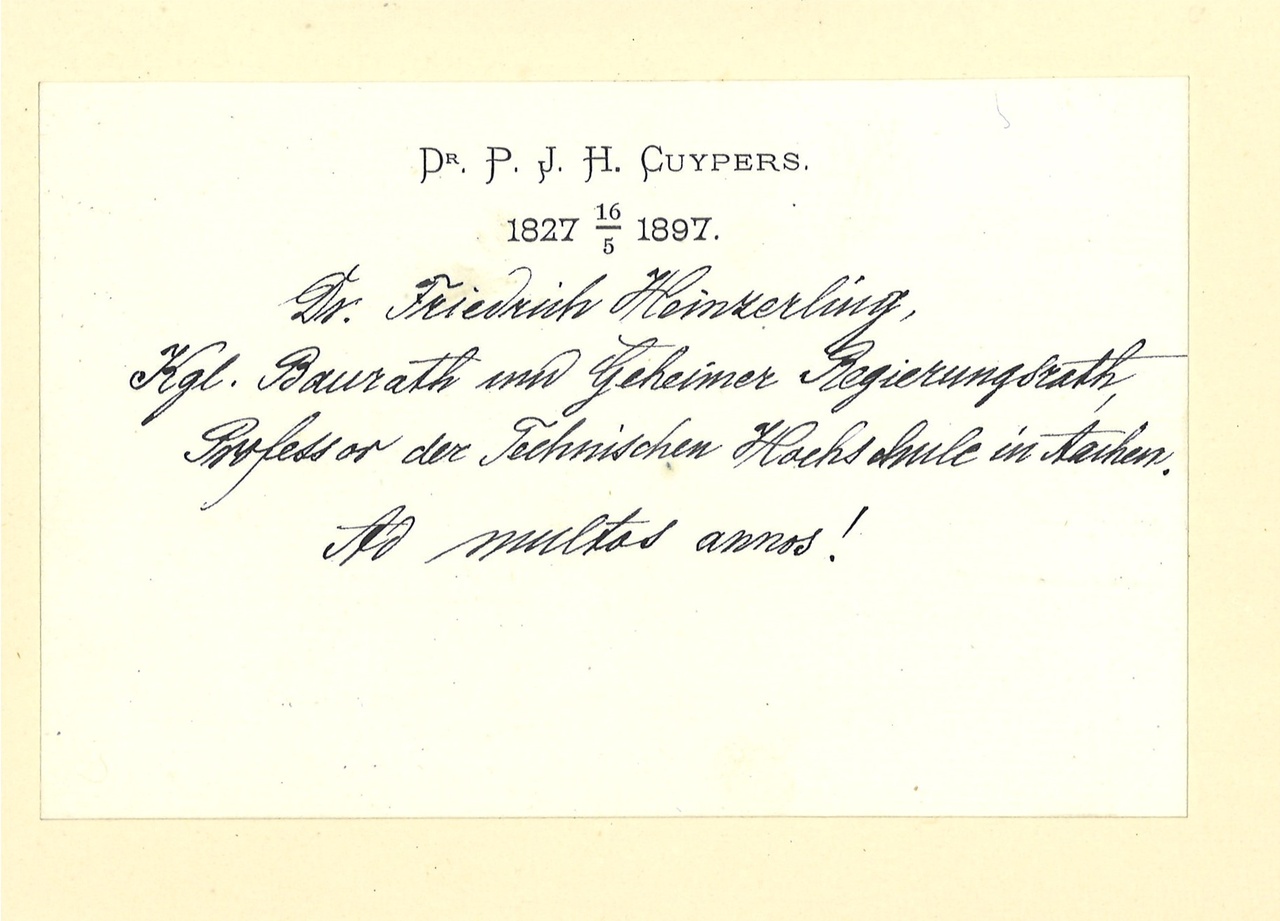 Dr. P. J. H. Cuypers.
1827 16/5 1897.
Dr. Friedrich Heinzerling,
Kgl. Baurath und Geheimer Regierungsrath,
Professor der Technischen Hochschule in Aachen.
Ad multos annos!